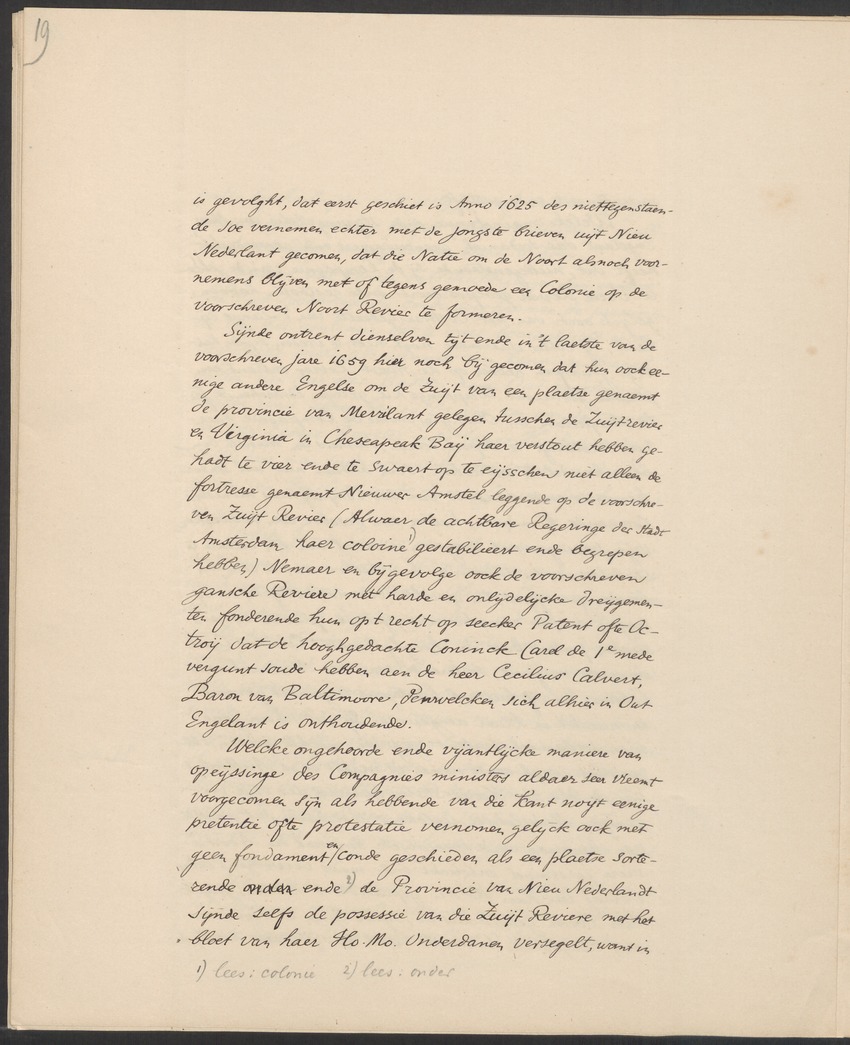 19
is gevolght, dat eerst geschiet is Anno 1625 des niettegenstaen-
de soe vernemen echter met de jongste brieven uijt Nieu
Nederlant gecomen, dat die Natie om de Noort alsnoch voor-
nemens blijven met of tegens gemoede een Colonie op de
voorschreven Noort Revier te formeren.
Sijnde ontrent dienselven tijt ende in 't laetste van de
voorschreven jare 1659 hier noch bij gecomen dat hun oock ee-
nige andere Engelse om de Zuijt van een plaetse genaemt
de provincie van Merrilant gelegen tusschen de Zuijtrevier
en Virginia in Cheseapeak Baij haer verstout hebben ge-
hadt te vier ende te swaert op te eijsschen niet alleen de
fortresse genaemt Nieuwer Amstel leggende op de voorschre-
ven Zuijt Revier (Alwaer de achtbare Regeringe der Stadt
Amsterdam haer coloine 1) gestabilieert ende begrepen
hebben) Nemaer en bijgevolge oock de voorschreven
gansche Reviere met harde en onlijdelijcke dreijgemen-
ten fonderende hun opt recht op seecker Patent ofte Oc-
troij dat de hooghgedachte Coninck Carel de 1e mede
vergunt soude hebben aen de heer Cecilius Calvert,
Baron van Baltimoore, denwelcken sich alhier in Out
Engelant is onthoudende.
Welcke ongehoorde ende vijantlijcke maniere van
opeijssinge des Compagnies ministers aldaer seer vreemt
voorgecomen sijn als hebbende van die kant noyt eenige
pretentie ofte protestatie vernomen gelijck oock met
geen fondament en conde geschieden als een plaetse sorte-
rende ende 2) de Provincie van Nieu Nederlandt
sijnde selfs de possessie van die Zuijt Reviere met het
bloet van haer Ho. Mo. Onderdanen versegelt, want in
1) lees: colonie 2) lees: onder